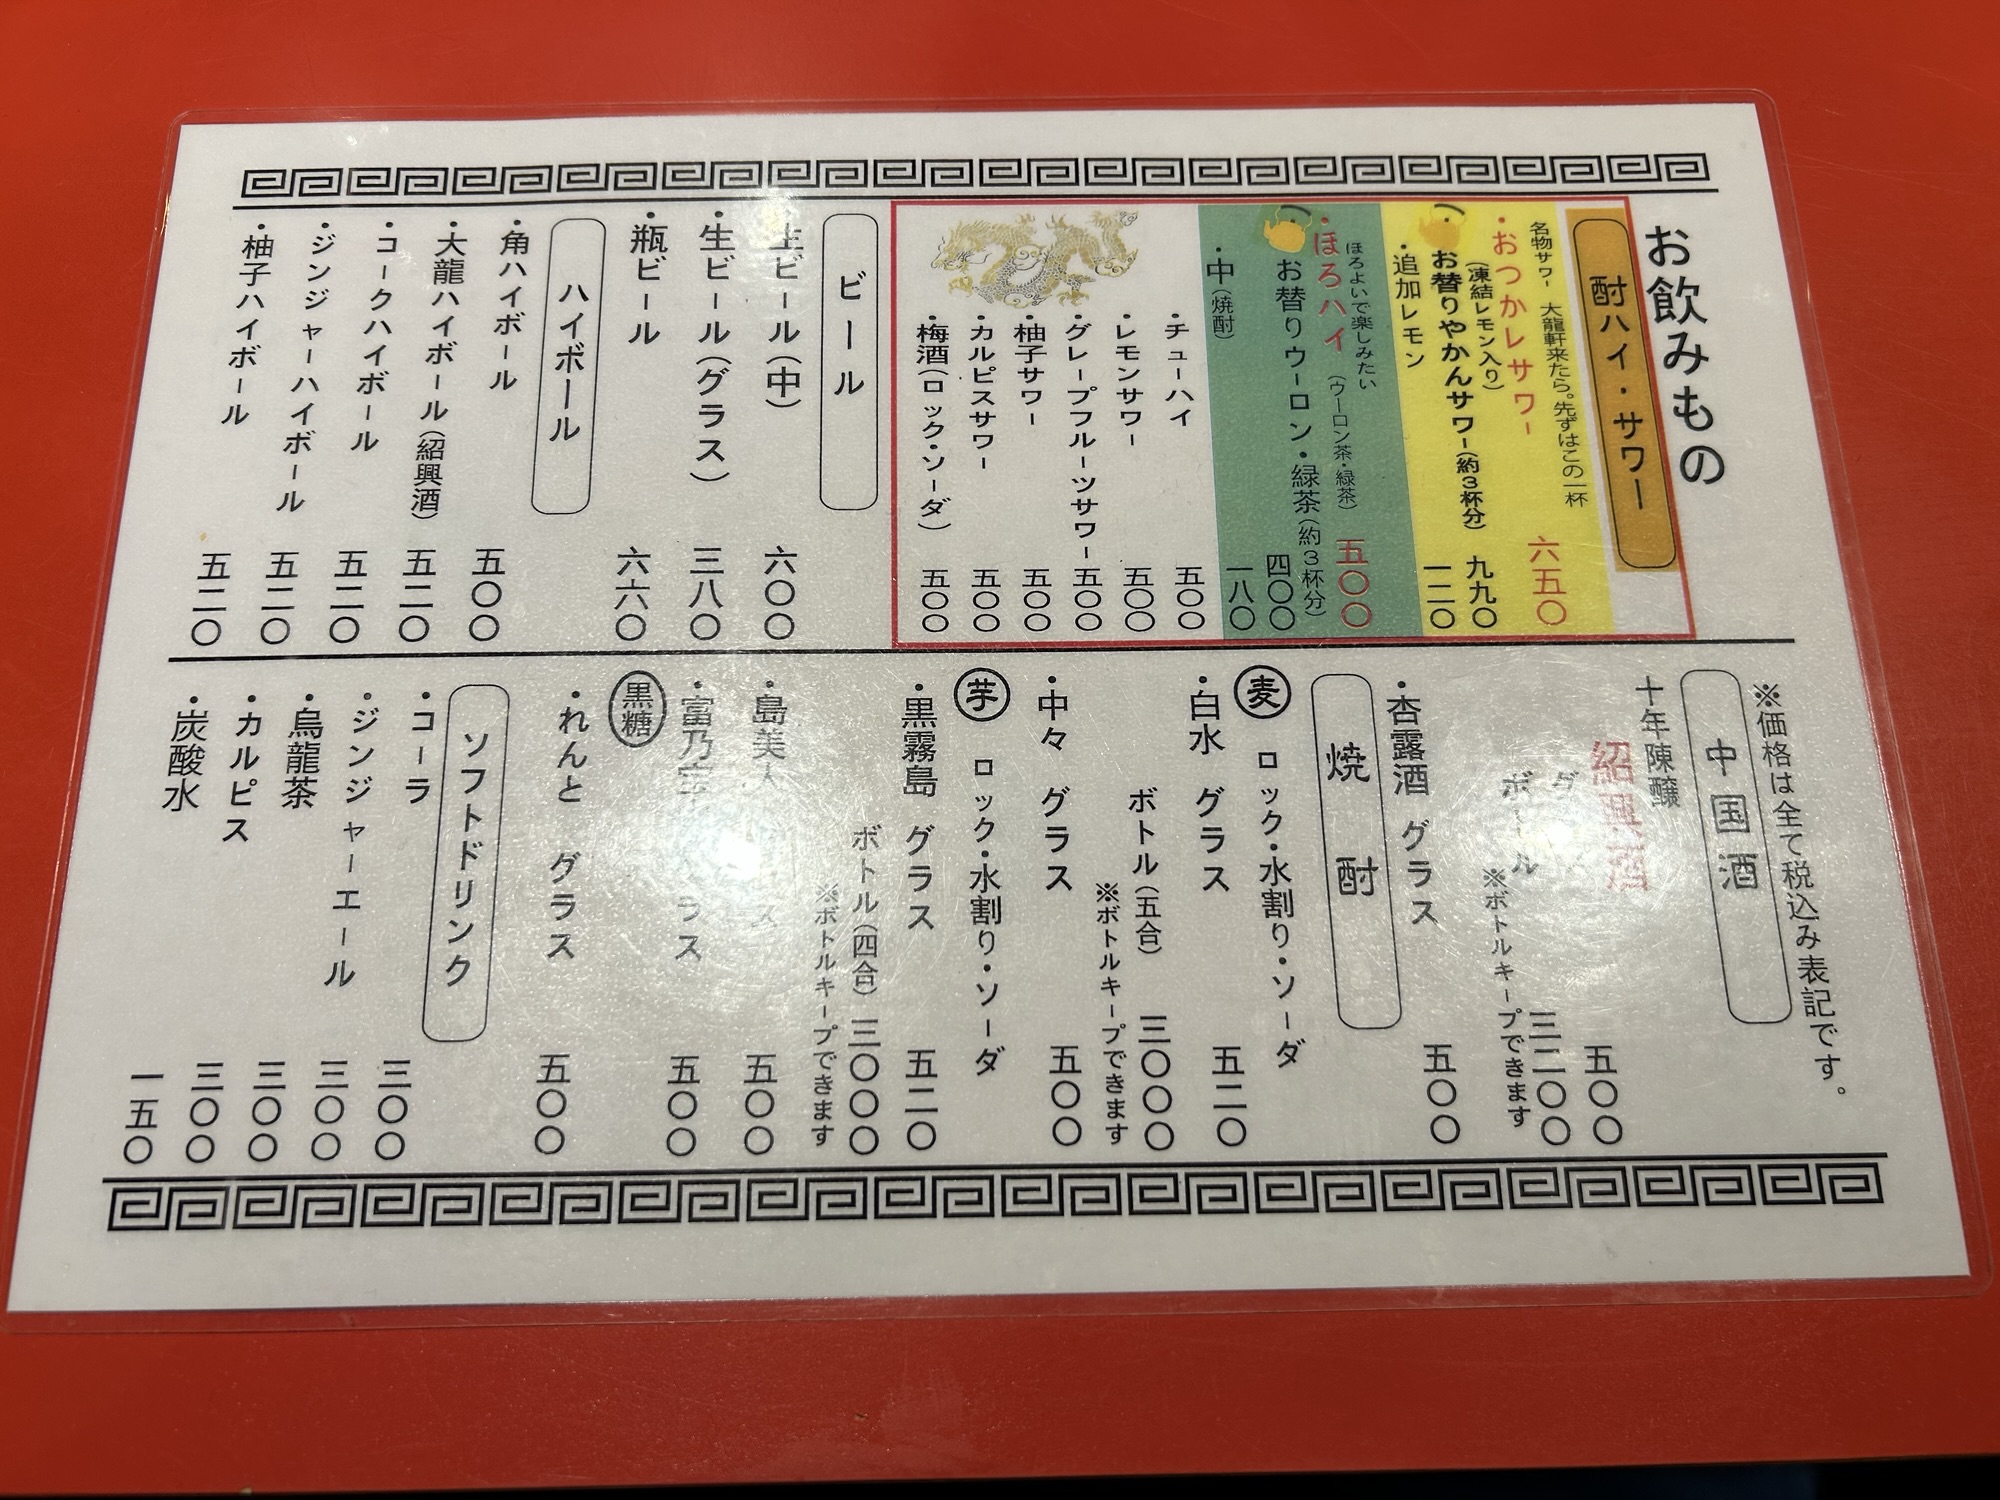 お飲みもの
酎ハイ・サワー
名物サワー 大龍軒来たら。先ずはこの一杯
・おつかレサワー 六五〇
(凍結レモン入り)
・お替りやかんサワー(約3杯分) 九九〇
・追加レモン 一二〇
ほろよいで楽しみたい
・ほろハイ (ウーロン茶・緑茶) 五〇〇
・お替りウーロン・緑茶(約3杯分) 四〇〇
・中(焼酎) 一八〇
・チューハイ 五〇〇
・レモンサワー 五〇〇
・グレープフルーツサワー 五〇〇
・柚子サワー 五〇〇
・カルピスサワー 五〇〇
・梅酒(ロック・ソーダ) 五〇〇
ビール
・生ビール(中) 六〇〇
・生ビール(グラス) 三八〇
・瓶ビール 六六〇
ハイボール
・角ハイボール 五〇〇
・大龍ハイボール(紹興酒) 五二〇
・コークハイボール 五二〇
・ジンジャーハイボール 五二〇
・柚子ハイボール 五二〇
※価格は全て税込み表記です。
中国酒
十年陳醸
紹興酒
五〇〇
ボトル 三二〇〇
※ボトルキープできます
・杏露酒 グラス 五〇〇
焼酎
麦 ロック・水割り・ソーダ
・白水 グラス 五二〇
ボトル(五合) 三〇〇〇
※ボトルキープできます
・中々 グラス 五〇〇
芋 ロック・水割り・ソーダ
・黒霧島 グラス 五二〇
ボトル(四合) 三〇〇〇
※ボトルキープできます
・島美人 五〇〇
・富乃宝山 グラス 五〇〇
黒糖
・れんと グラス 五〇〇
ソフトドリンク
・コーラ 三〇〇
・ジンジャーエール 三〇〇
・烏龍茶 三〇〇
・カルピス 三〇〇
・炭酸水 一五〇